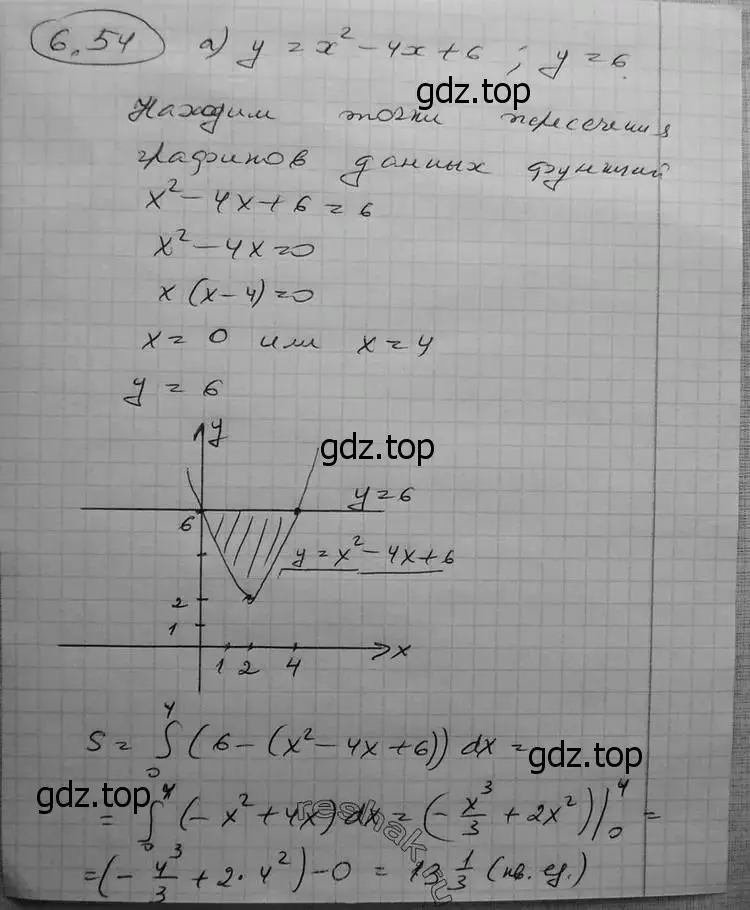 6.54 а) y = x² - 4x + 6 ; y = 6.
gdz.top
Находим точки пересечения
графиков данных функций
x² - 4x + 6 = 6
x² - 4x = 0
x (x - 4) = 0
x = 0 или x = 4
y = 6
y
gdz.top
y = 6
6
y = x² - 4x + 6
2
1
1 2 4 x
S = ∫₀⁴ (6 - (x² - 4x + 6)) dx =
gdz.top
gdz.top
= ∫₀⁴ (- x² + 4x) dx = (- x³/3 + 2x²)|₀⁴ =
reshak.ru
= (- 4³/3 + 2·4²) - 0 = 13 1/3 (кв. ед.)